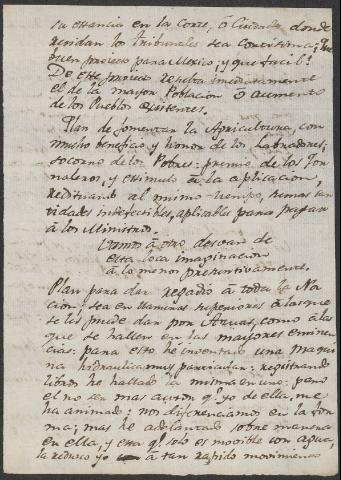 su estancia en la Corte, ó Ciudades donde
residan los tribunales sea cortisima; que
buen proyecto para Mexico; y que facil!
De este proyecto resulta inmediatamente
el de la mayor Poblacion ó aumento
de los Pueblos existentes.
Plan de fomentar la Agricultura, con
mucho beneficio y honor de los Labradores;
socorro de los Pobres: premio de los Jor
naleros, y estimulo á la aplicacion,
redituando al mismo tiempo, sumas can
tidades indefectibles, aplicables para pagar
á los Ministros.
Vamos á otro desvan de
esta loca imaginacion
á lo menos presuntivamente.
Plan para dar regadio á toda la Na
cion: sea en llanuras superiores á las que
se les puede dar por Azuas, como á las
que se hallen en las mayores eminen
cias: para esto he inventado una maqui
na hidraulica muy particular: registrando
libros he hallado la misma en uno: pero
el no ser mas autor qe. yo de ella, me
ha animado: nos diferenciamos en la for
ma; mas he adelantado sobre manera
en ella, y esta qe. solo es movible con agua,
la reduzco yo á tan rapido movimiento